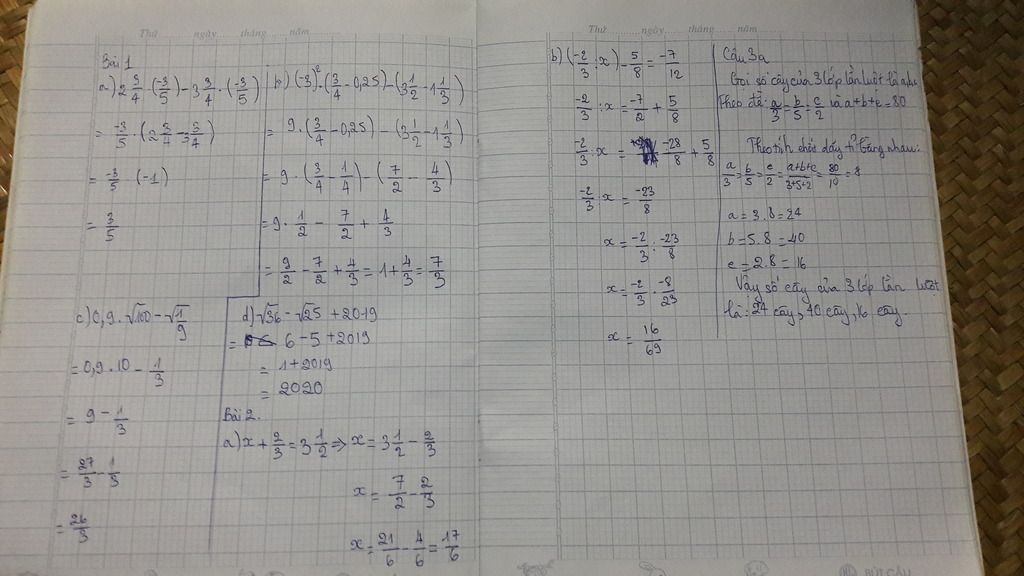 Thứ ngày tháng năm
Bài 1
a) 2 3/4 · (-3/5) - 3 3/4 · (-3/5)
= -3/5 · (2 3/4 - 3 3/4)
= -3/5 · (-1)
= 3/5
b) (-3)² · (3/4 - 0,25) - (3 1/2 - 1 1/3)
= 9 · (3/4 - 0,25) - (3 1/2 - 1 1/3)
= 9 · (3/4 - 1/4) - (7/2 - 4/3)
= 9 · 1/2 - 7/2 + 4/3
= 9/2 - 7/2 + 4/3 = 1 + 4/3 = 7/3
c) 0,9 · √100 - √1/9
= 0,9 · 10 - 1/3
= 9 - 1/3
= 27/3 - 1/3
= 26/3
d) √36 - √25 + 2019
= 6 - 5 + 2019
= 1 + 2019
= 2020
Bài 2.
a) x + 2/3 = 3 1/2 => x = 3 1/2 - 2/3
x = 7/2 - 2/3
x = 21/6 - 4/6 = 17/6
Thứ ngày tháng năm
b) (-2/3 : x) - 5/8 = -7/12
-2/3 : x = -7/2 + 5/8
-2/3 : x = -28/8 + 5/8
-2/3 : x = -23/8
x = -2/3 : -23/8
x = -2/3 · -8/23
x = 16/69
Câu 3a
Gọi số cây của 3 lớp lần lượt là
Theo đề: a/3 = b/5 = c/2 và a+b+c = 80
Theo tính chất dãy tỉ bằng nhau:
a/3 = b/5 = c/2 = a+b+c/3+5+2 = 80/10 = 8
a = 3.8 = 24
b = 5.8 = 40
c = 2.8 = 16
Vậy số cây của 3 lớp lần lượt
là: 24 cây, 40 cây, 16 cây.
BÚT CÂU